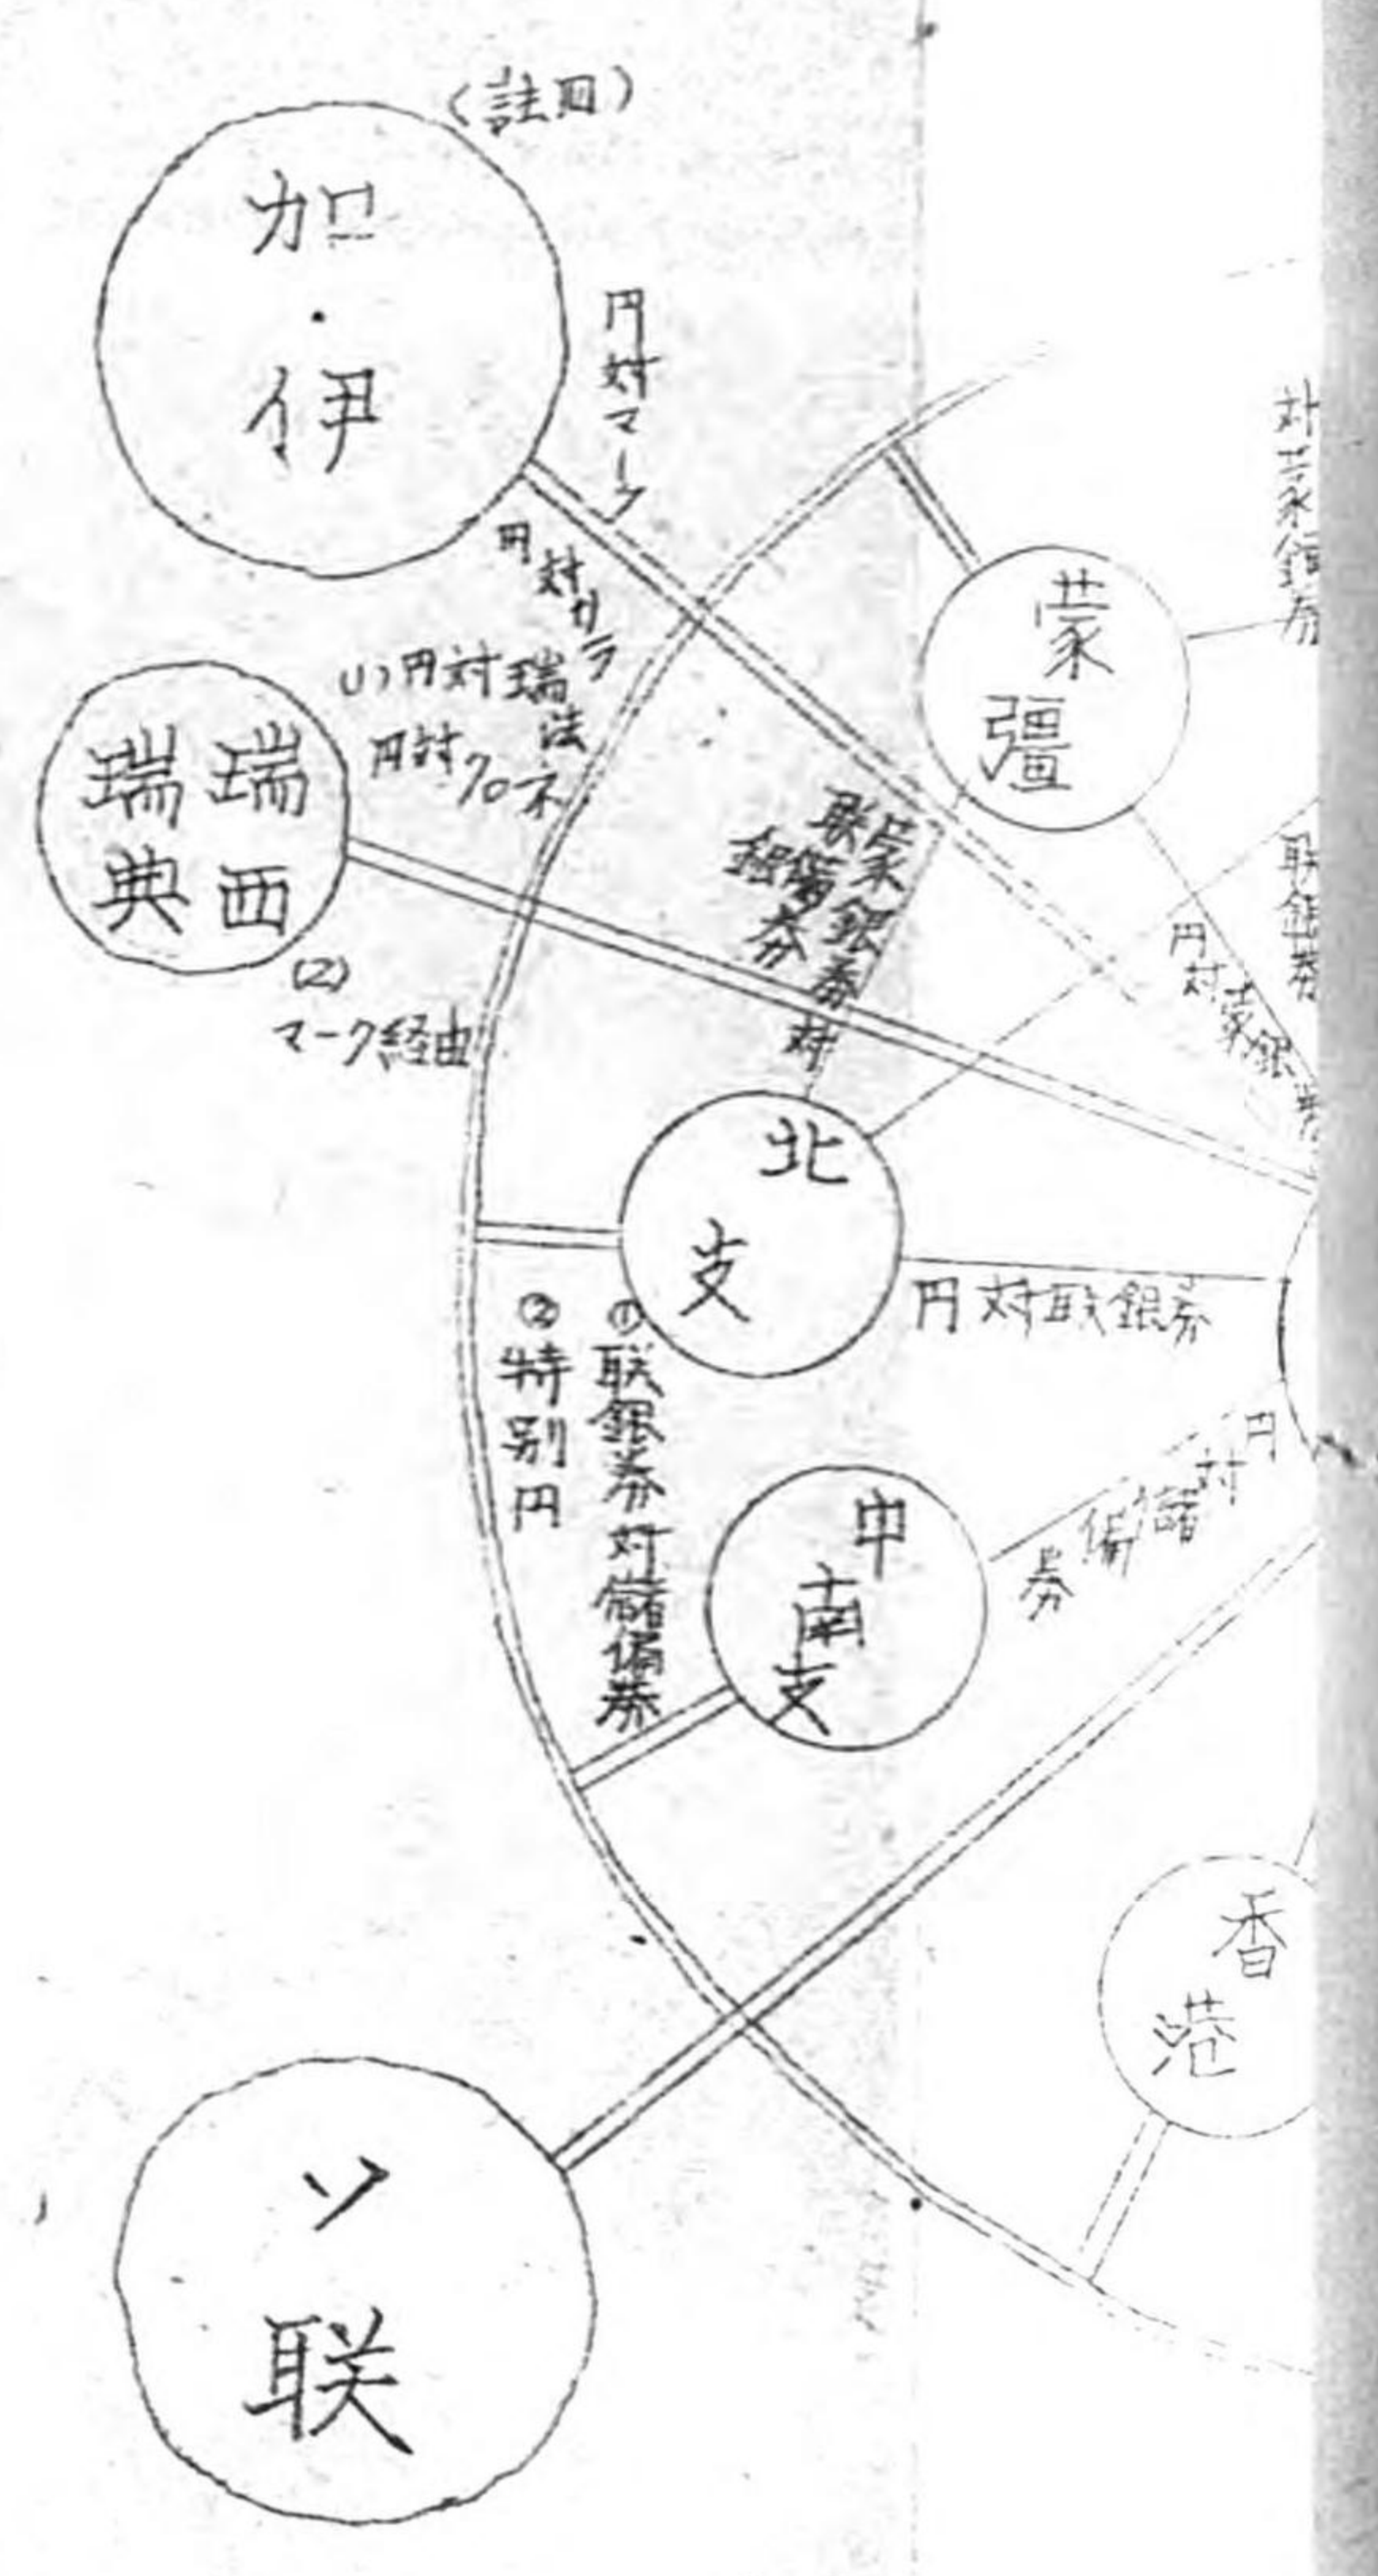 (註四)
加・伊
円対マーク
円対リラ
(1)円対瑞法
円対クロネ
瑞西
瑞典
(2)
マーク経由
蒙疆
対蒙銀券
蒙銀券対
聯銀券
円対蒙銀券
北支
円対联銀券
①联銀券対儲備券
②特別円
中南支
円対儲備券
香港
ソ联